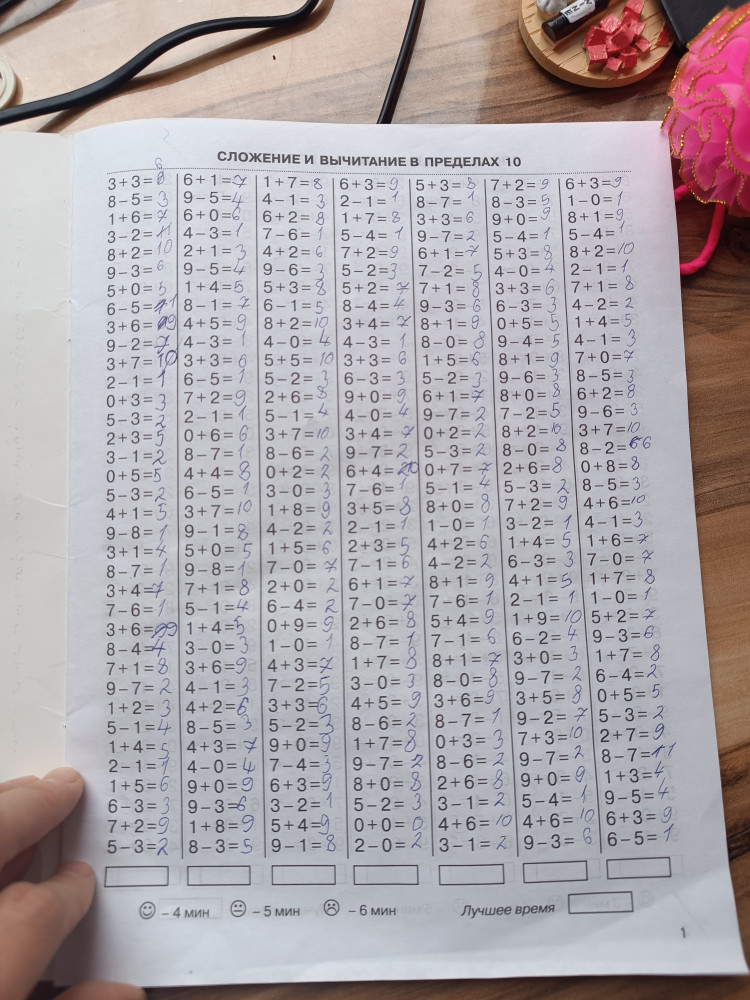 СЛОЖЕНИЕ И ВЫЧИТАНИЕ В ПРЕДЕЛАХ 10
3+3=6
8-5=3
1+6=7
3-2=11
8+2=10
9-3=6
5+0=5
6-5=1
3+6=9
9-2=7
3+7=10
2-1=1
0+3=3
5-3=2
2+3=5
3-1=2
0+5=5
5-3=2
4+1=5
9-8=1
3+1=4
8-7=1
3+4=7
7-6=1
3+6=9
8-4=4
7+1=8
9-7=2
1+2=3
5-1=4
1+4=5
2-1=1
1+5=6
6-3=3
7+2=9
5-3=2
6+1=7
9-5=4
6+0=6
4-3=1
2+1=3
9-5=4
1+4=5
8-1=7
4+5=9
4-3=1
3+3=6
6-5=1
7+2=9
2-1=1
0+6=6
8-7=1
4+4=8
6-5=1
3+7=10
9-1=8
5+0=5
9-8=1
7+1=8
5-1=4
1+4=5
3-0=3
3+6=9
4-1=3
4+2=6
8-5=3
4+3=7
4-0=4
9+0=9
9-3=6
1+8=9
8-3=5
1+7=8
4-1=3
6+2=8
7-6=1
4+2=6
9-6=3
5+3=8
6-1=5
8+2=10
4-0=4
5+5=10
5-2=3
2+6=8
5-1=4
3+7=10
8-6=2
0+2=2
3-0=3
1+8=9
4-2=2
1+5=6
7-0=7
2+0=2
6-4=2
0+9=9
1-0=1
4+3=7
7-2=5
3+3=6
5-2=3
9+0=9
7-4=3
6+3=9
3-2=1
5+4=9
9-1=8
6+3=9
2-1=1
1+7=8
5-4=1
7+2=9
5-2=3
5+2=7
8-4=4
3+4=7
4-3=1
3+3=6
6-3=3
9+0=9
4-0=4
3+4=7
9-7=2
6+4=10
7-6=1
3+5=8
2-1=1
2+3=5
7-1=6
6+1=7
7-0=7
2+6=8
8-7=1
1+7=8
3-0=3
4+5=9
8-6=2
1+7=8
9-7=2
8+0=8
5-2=3
0+0=0
2-0=2
5+3=8
8-7=1
3+3=6
9-7=2
6+1=7
7-2=5
7+1=8
9-3=6
8+1=9
8-0=8
1+5=6
5-2=3
6+1=7
9-7=2
0+2=2
5-3=2
0+7=7
5-1=4
8+0=8
1-0=1
4+2=6
4-2=2
8+1=9
7-6=1
5+4=9
7-1=6
8+1=7
8-0=8
3+6=9
8-7=1
0+3=3
8-6=2
2+6=8
3-1=2
4+6=10
3-1=2
7+2=9
8-3=5
9+0=9
5-4=1
5+3=8
4-0=4
3+3=6
6-3=3
0+5=5
9-4=5
8+1=9
9-6=3
8+0=8
7-2=5
8+2=10
8-0=8
2+6=8
5-3=2
7+2=9
3-2=1
1+4=5
6-3=3
4+1=5
2-1=1
1+9=10
6-2=4
3+0=3
9-7=2
3+5=8
9-2=7
7+3=10
9-7=2
9+0=9
5-4=1
4+6=10
9-3=6
6+3=9
1-0=1
8+1=9
5-4=1
8+2=10
2-1=1
7+1=8
4-2=2
1+4=5
4-1=3
7+0=7
8-5=3
6+2=8
9-6=3
3+7=10
8-2=66
0+8=8
8-5=3
4+6=10
4-1=3
1+6=7
7-0=7
1+7=8
1-0=1
5+2=7
9-3=6
1+7=8
6-4=2
0+5=5
5-3=2
2+7=9
8-7=11
1+3=4
9-5=4
6+3=9
6-5=1
– 4 мин – 5 мин – 6 мин Лучшее время
1